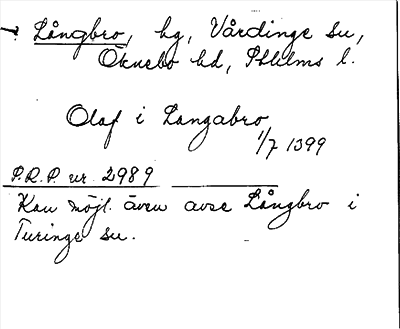 Långbro, hg, Vårdinge sn,
Öknebo hd, Sthlms l.
Olaf i Langabro
1/7 1399
P.R.P. nr 2989
Kan möjl. även avse Långbro i
Turinge sn.